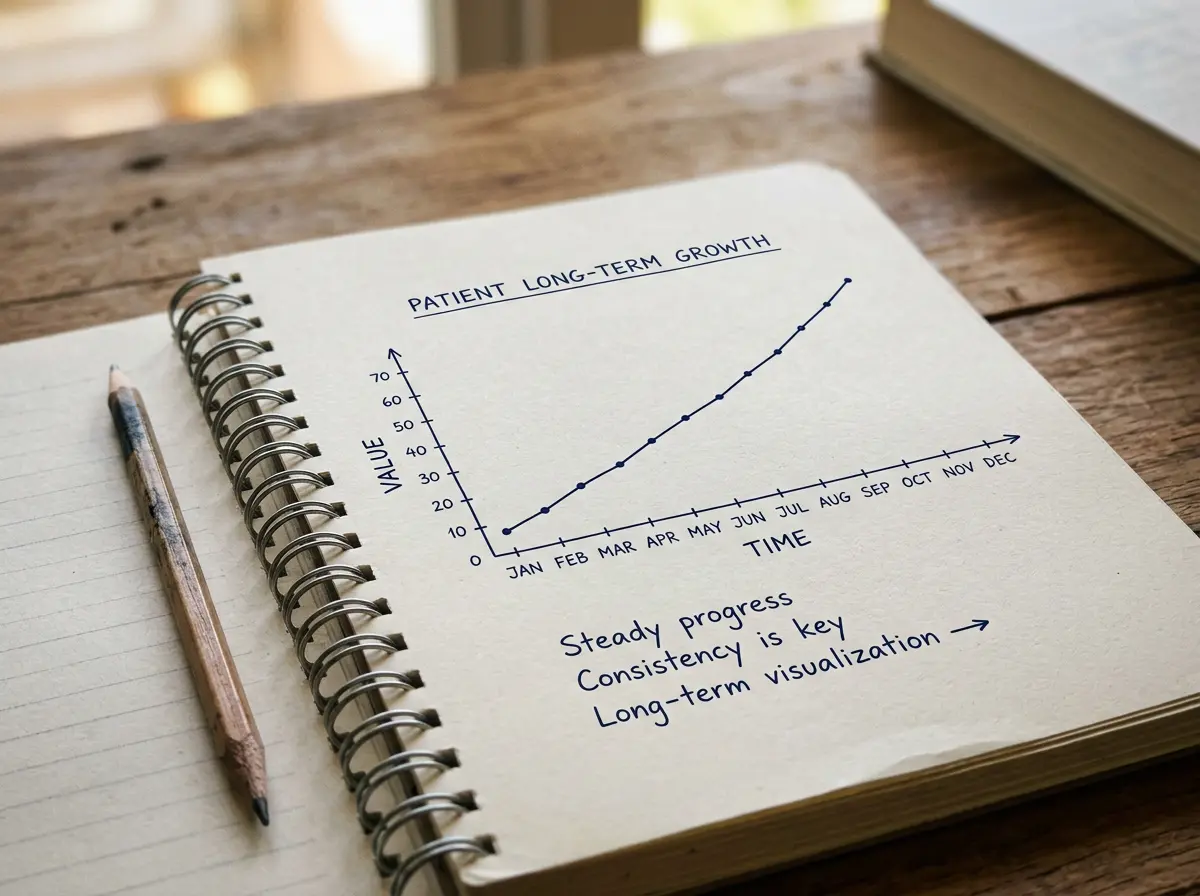 PATIENT LONG-TERM GROWTH
70
60
50
40
30
20
10
0
VALUE
JAN FEB MAR APR MAY JUN JUL AUG SEP OCT NOV DEC
TIME
Steady progress
Consistency is key
Long-term visualization →